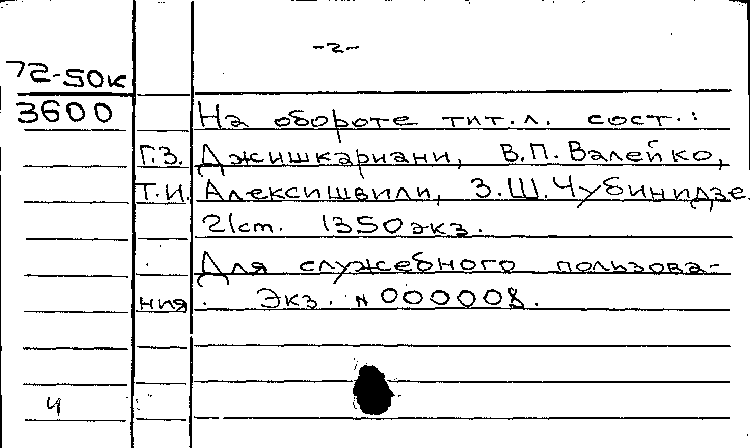 -2-
72-50к
3600 На обороте тит.л. сост.:
Г.З. Джишкариани, В.П. Валейко,
Т.И. Алексишвили, З.Ш. Чубинидзе
21см. 1350экз.
Для служебного пользова-
ния. Экз. № 000008.
ч